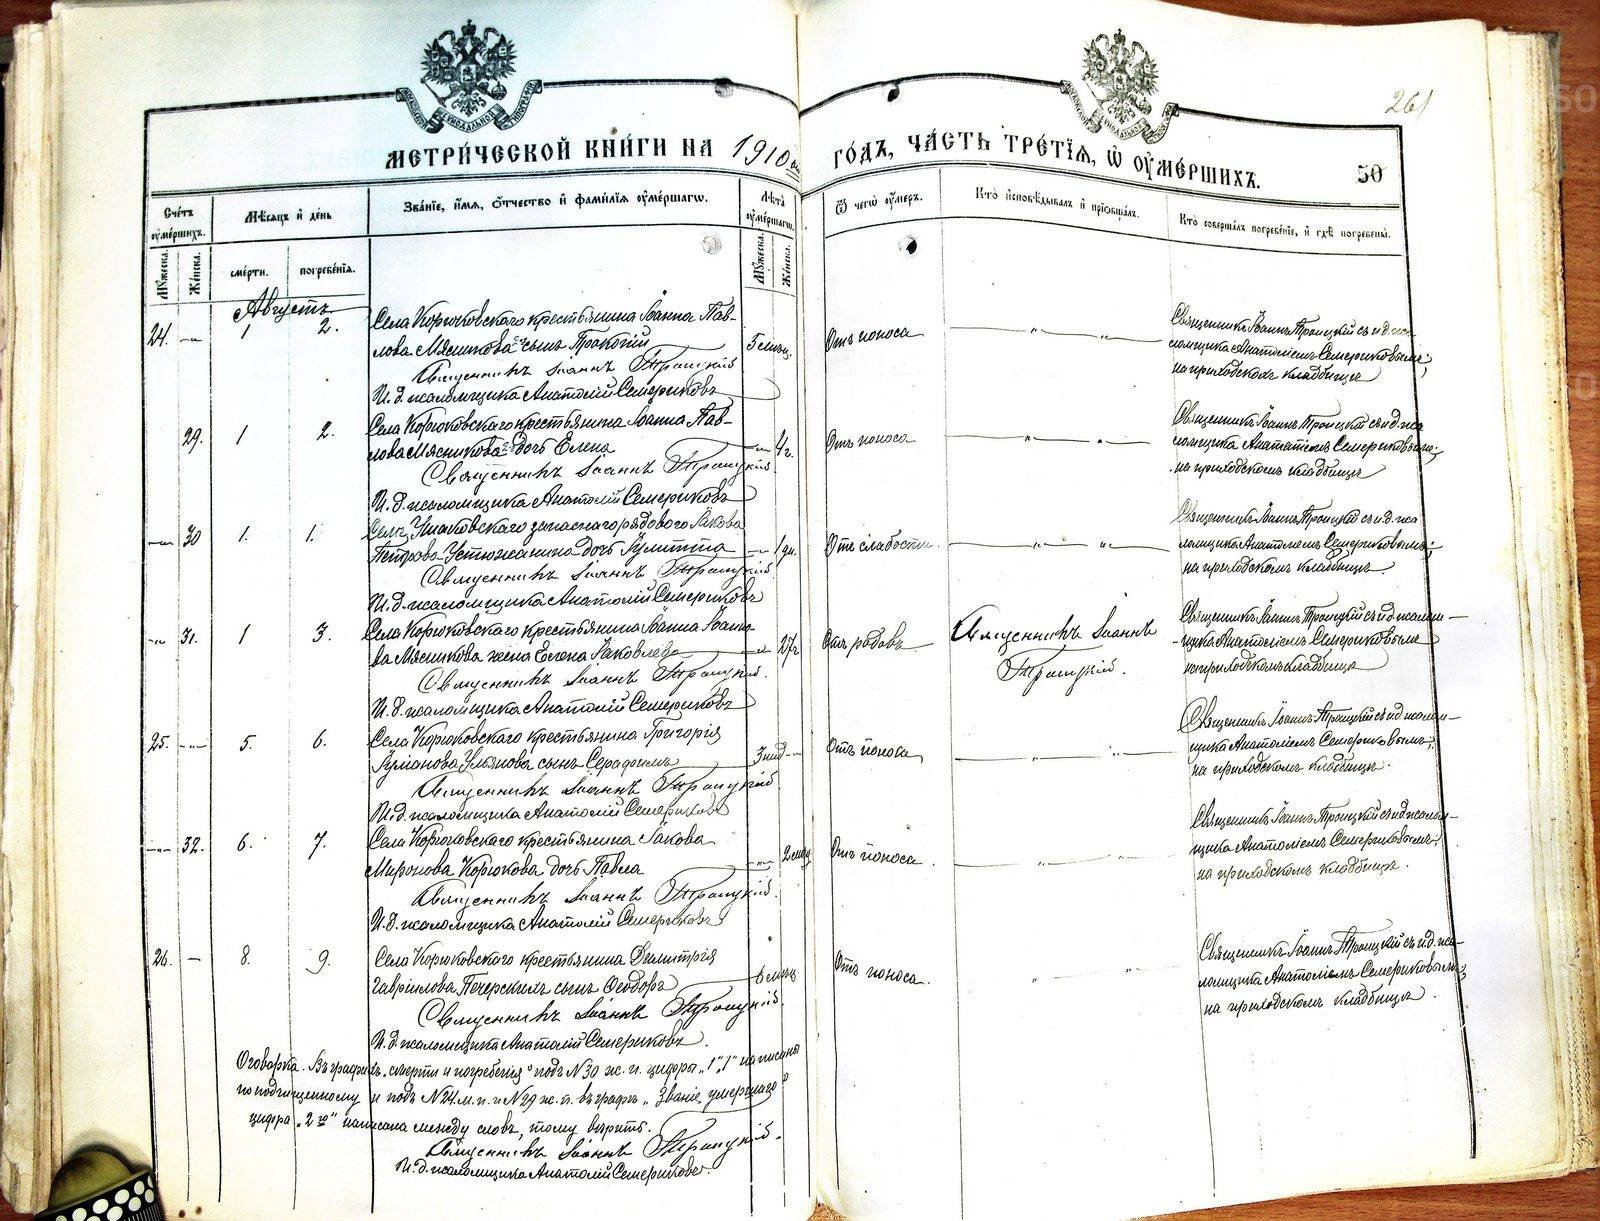 261
МЕТРИ́ЧЕСКОЙ КНИ́ГИ НА 1910 ГО́ДЪ, ЧА́СТЬ ТРЕ́ТІѦ, Ѡ ОУМЕ́РШИХЪ.
50
Сче́тъ оуме́ршихъ.
Мѣсяцъ и де́нь
Зва́ніе, и́мя, о́тчество и фами́лія оуме́ршагѡ.
Лѣ́та оуме́ршагѡ.
Ѿ чегѡ̀ оу́меръ.
Кто̀ исповѣ́дывалъ и прїѡбща́лъ.
Кто̀ соверша́лъ погребе́ніе, и гдѣ̀ погребены̀.
Мꙋжеска.
Же́нска.
сме́рти.
погребе́нія.
Мꙋжеска.
Же́нска.
Августъ
24. — 1 2. Села Корюковскаго крестьянина Іоанна Пав-
лова Мясникова 2го сынъ Прокопій 5 мѣсц. Отъ поноса
Священникъ Іоаннъ Троицкій
И. д. псаломщика Анатолій Семериковъ
Священникъ Іоаннъ Троицкій съ и. д. пса-
ломщика Анатоліемъ Семериковымъ;
на приходскомъ кладбищѣ
29. 1 2. Села Корюковскаго крестьянина Іоанна Пав-
лова Мясникова 2го дочь Елена 4 г. Отъ поноса
Священникъ Іоаннъ Троицкій
И. д. псаломщика Анатолій Семериковъ
Священникъ Іоаннъ Троицкій съ и. д. пса
ломщика Анатоліемъ Семериковымъ;
на приходскомъ кладбищѣ
30 1. 1. запаснаго рядового Іакова
Петрова Устюжанина дочь Іулитта 1 дн. Отъ слабости
Священникъ Іоаннъ Троицкій
И. д. псаломщика Анатолій Семериковъ
Священникъ Іоаннъ Троицкій съ и. д. пса
ломщика Анатоліемъ Семериковымъ;
на приходскомъ кладбищѣ.
31. 1 3. Села Корюковскаго крестьянина Іоанна Іоанно-
ва Мясникова жена Елена Іаковлева 27 г. Отъ родовъ
Священникъ Іоаннъ Троицкій.
И. д. псаломщика Анатолій Семериковъ
Священникъ Іоаннъ
Троицкій.
Священникъ Іоаннъ Троицкій съ и. д. псалом-
щика Анатоліемъ Семериковымъ
на приходскомъ кладбищѣ
25. 5. 6. Села Корюковскаго крестьянина Григорія
Ульянова сынъ Серафимъ 3 нед. Отъ поноса
Священникъ Іоаннъ Троицкій
И. д. псаломщика Анатолій Семериковъ
Священникъ Іоаннъ Троицкій съ и. д. псалом-
щика Анатоліемъ Семериковымъ;
на приходскомъ кладбищѣ.
32. 6. 7. Села Корюковскаго крестьянина Іакова
Миронова Корюкова дочь Павла Отъ поноса.
Священникъ Іоаннъ Троицкій.
И. д. псаломщика Анатолій Семериковъ
Священникъ Іоаннъ Троицкій съ и. д. псалом-
щика Анатоліемъ Семериковымъ;
на приходскомъ кладбищѣ.
26. — 8. 9. Села Корюковскаго крестьянина Димитрія
Гавріилова Печерскихъ сынъ Ѳеодоръ 6 мѣсц. Отъ поноса.
Священникъ Іоаннъ Троицкій.
И. д. псаломщика Анатолій Семериковъ.
Священникъ Іоаннъ Троицкій съ и. д. пса-
ломщика Анатоліемъ Семериковымъ;
на приходскомъ кладбищѣ.
Оговорка. Въ графахъ „смерти и погребенія" подъ №30 ж. п. цифры „1", „1" написаны
по подчищенному и подъ №24 м. п. и №29 ж. п. въ графѣ „Званіе умершаго"
цифра „2го" написана между словъ, тому вѣрить.
Священникъ Іоаннъ Троицкій.
И. д. псаломщика Анатолій Семериковъ.